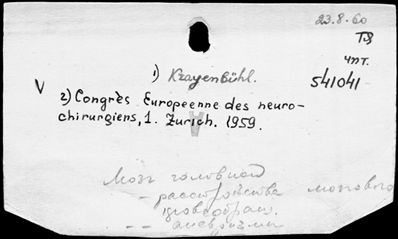 23.8.60
ТЯ
чпт.
541041
1) Krayenbühl.
V
2) Congrès Européenne des neuro-
chirurgiens, 1. Zurich. 1959.
V
Мозг головной
– расстройства мозгового
кровообращ.
– аневризмы